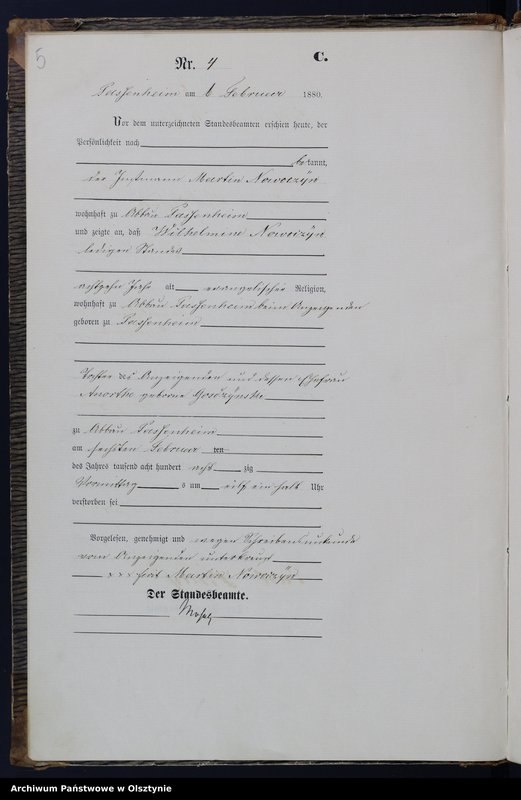 5
Nr. 4
C.
Passenheim am 6 Februar 1880.
Vor dem unterzeichneten Standesbeamten erschien heute, der
Persönlichkeit nach
bekannt,
der Instmann Martin Nowozÿn
wohnhaft zu Abbau Passenheim
und zeigte an, daß Wilhelmine Nowozÿn
ledigen Standes
achtzehn Jahr alt evangelischer Religion,
wohnhaft zu Abbau Passenheim beim Anzeigenden
geboren zu Passenheim
Tochter des Anzeigenden und dessen Ehefrau
geborne
zu Abbau Passenheim
am sechsten Februar ten
des Jahres tausend acht hundert acht zig
Vormittag s um ein halb Uhr
verstorben sei
Vorgelesen, genehmigt und wegen Schreibensunkunde
vom Anzeigenden unterkreuzt
x x x Martin Nowozÿn
Der Standesbeamte.
Archiwum Państwowe w Olsztynie